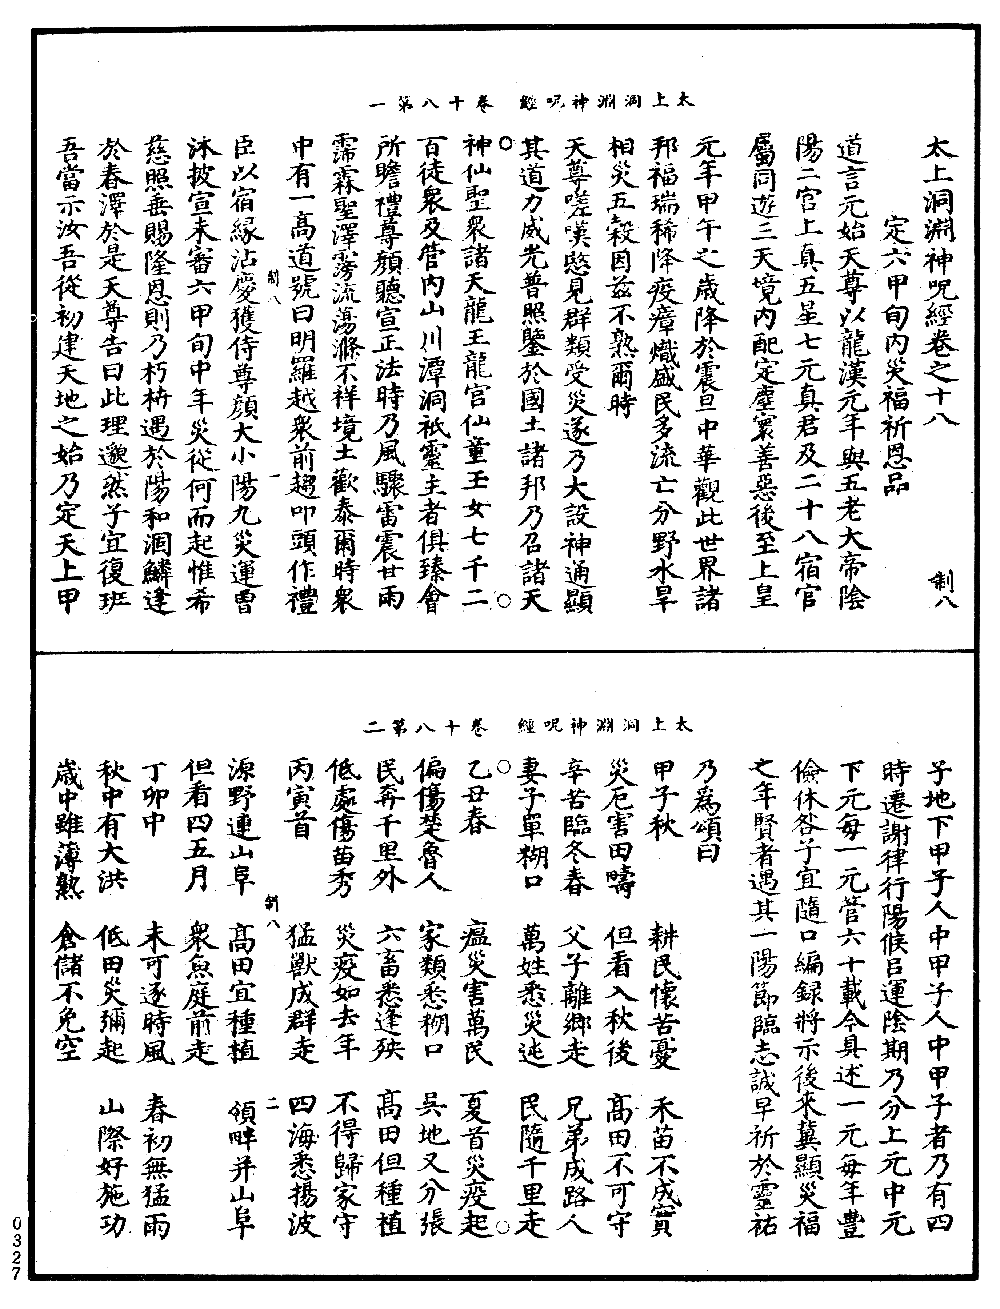 太上洞淵神呪經 卷十八第一
太上洞淵神呪經卷之十八 制八
定六甲旬內災福祈恩品
道言元始天尊以龍漢元年與五老大帝陰
陽二官上真五星七元真君及二十八宿官
屬同遊三天境內配定塵寰善惡後至上皇
元年甲午之歲降於震旦中華觀此世界諸
邦福瑞稀降疫瘴熾盛民多流亡分野水旱
相災五穀因茲不熟爾時
天尊嗟嘆愍見群類受災遂乃大設神通顯
其道力威光普照鑒於國土諸邦乃召諸天
神仙聖衆諸天龍王龍官仙童玉女七千二
百徒衆及管內山川潭洞祇靈主者俱臻會
所瞻禮尊顏聽宣正法時乃風驟雷震甘雨
霈霖聖澤霶流蕩滌不祥境土歡泰爾時衆
中有一高道號曰明羅越衆前趨叩頭作禮
制八 一
臣以宿緣沾慶獲侍尊顏大小陽九災運曹
沐披宣未審六甲旬中年災從何而起惟希
慈照垂賜隆恩則乃朽枿遇於陽和涸鱗逢
於春澤於是天尊告曰此理邈然子宜復班
吾當示汝吾從初建天地之始乃定天上甲
太上洞淵神呪經 卷十八第二
子地下甲子人中甲子人中甲子者乃有四
時遷謝律行陽候呂運陰期乃分上元中元
下元每一元管六十載今具述一元每年豐
儉休咎子宜隨口編録將示後來冀顯災福
之年賢者遇其一陽節臨志誠早祈於靈祐
乃為頌曰
甲子秋 耕民懷苦憂 禾苗不成實
災厄害田疇 但看入秋後 高田不可守
辛苦臨冬春 父子離鄉走 兄弟成路人
妻子單糊口 萬姓悉災迍 民隨千里走
乙丑春 瘟災害萬民 夏首災疫起
偏傷楚魯人 家類悉糊口 吳地又分張
民奔千里外 六畜悉逢殃 高田但種植
低處傷苗秀 災疫如去年 不得歸家守
丙寅首 猛獸成群走 四海悉揚波
制八 二
源野連山阜 高田宜種植 領畔并山阜
但看四五月 衆魚庭前走
丁卯中 未可逐時風 春初無猛雨
秋中有大洪 低田災彌起 山際好施功
歲中雖薄熟 倉儲不免空
0327